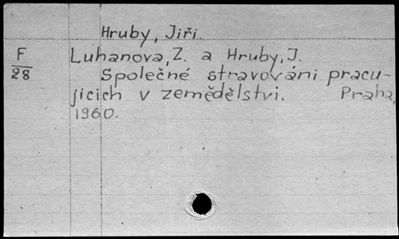 Hruby, Jiři.
F Luhanova, Z. a Hruby, J.
28 Společné stravováni pracu-
jicich v zemědělstvi. Praha,
1960.